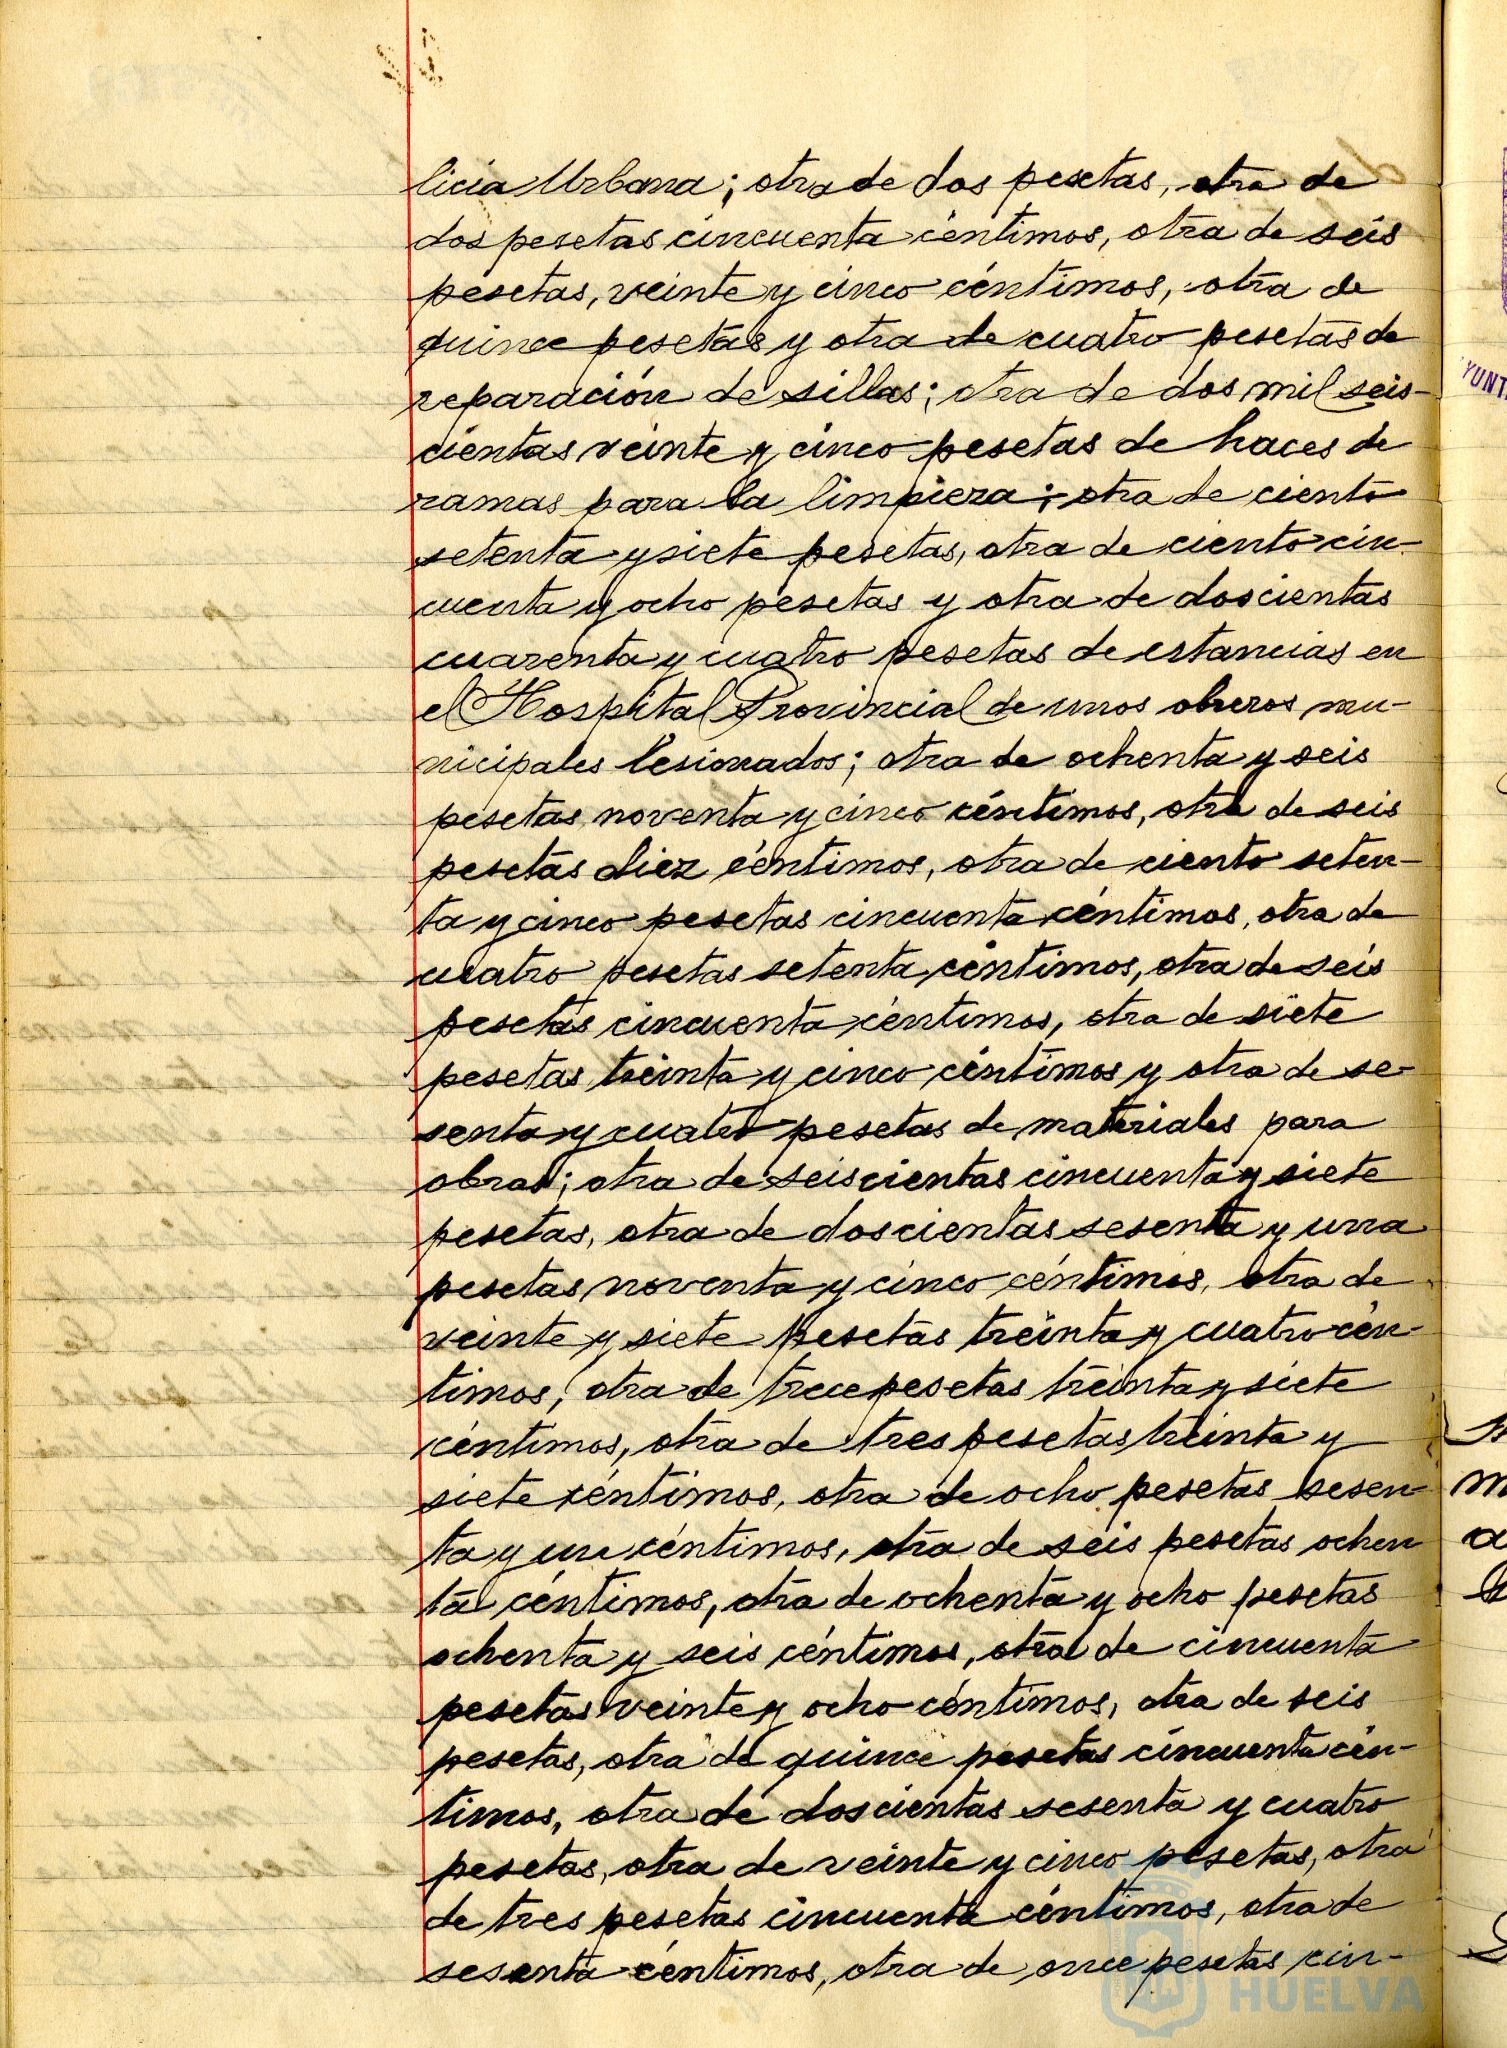 licia Urbana; otra de dos pesetas, otra de
dos pesetas cincuenta céntimos, otra de seis
pesetas, veinte y cinco céntimos, otra de
quince pesetas y otra de cuatro pesetas de
reparación de sillas; otra de dos mil seis-
cientas veinte y cinco pesetas de haces de
ramas para la limpieza; otra de ciento
setenta y siete pesetas, otra de ciento cin-
cuenta y ocho pesetas y otra de doscientas
cuarenta y cuatro pesetas de estancias en
el Hospital Provincial de unos obreros mu-
nicipales lesionados; otra de ochenta y seis
pesetas noventa y cinco céntimos, otra de seis
pesetas diez céntimos, otra de ciento seten-
ta y cinco pesetas cincuenta céntimos, otra de
cuatro pesetas setenta céntimos, otra de seis
pesetas cincuenta céntimos, otra de siete
pesetas treinta y cinco céntimos y otra de se-
senta y cuatro pesetas de materiales para
obras; otra de seiscientas cincuenta y siete
pesetas, otra de doscientas sesenta y una
pesetas noventa y cinco céntimos, otra de
veinte y siete pesetas treinta y cuatro cén-
timos, otra de trece pesetas treinta y siete
céntimos, otra de tres pesetas treinta y
siete céntimos, otra de ocho pesetas sesen-
ta y un céntimos, otra de seis pesetas ochen
ta céntimos, otra de ochenta y ocho pesetas
ochenta y seis céntimos, otra de cincuenta
pesetas veinte y ocho céntimos, otra de seis
pesetas, otra de quince pesetas cincuenta cén-
timos, otra de doscientas sesenta y cuatro
pesetas, otra de veinte y cinco pesetas, otra
de tres pesetas cincuenta céntimos, otra de
sesenta céntimos, otra de once pesetas cin-
HUELVA